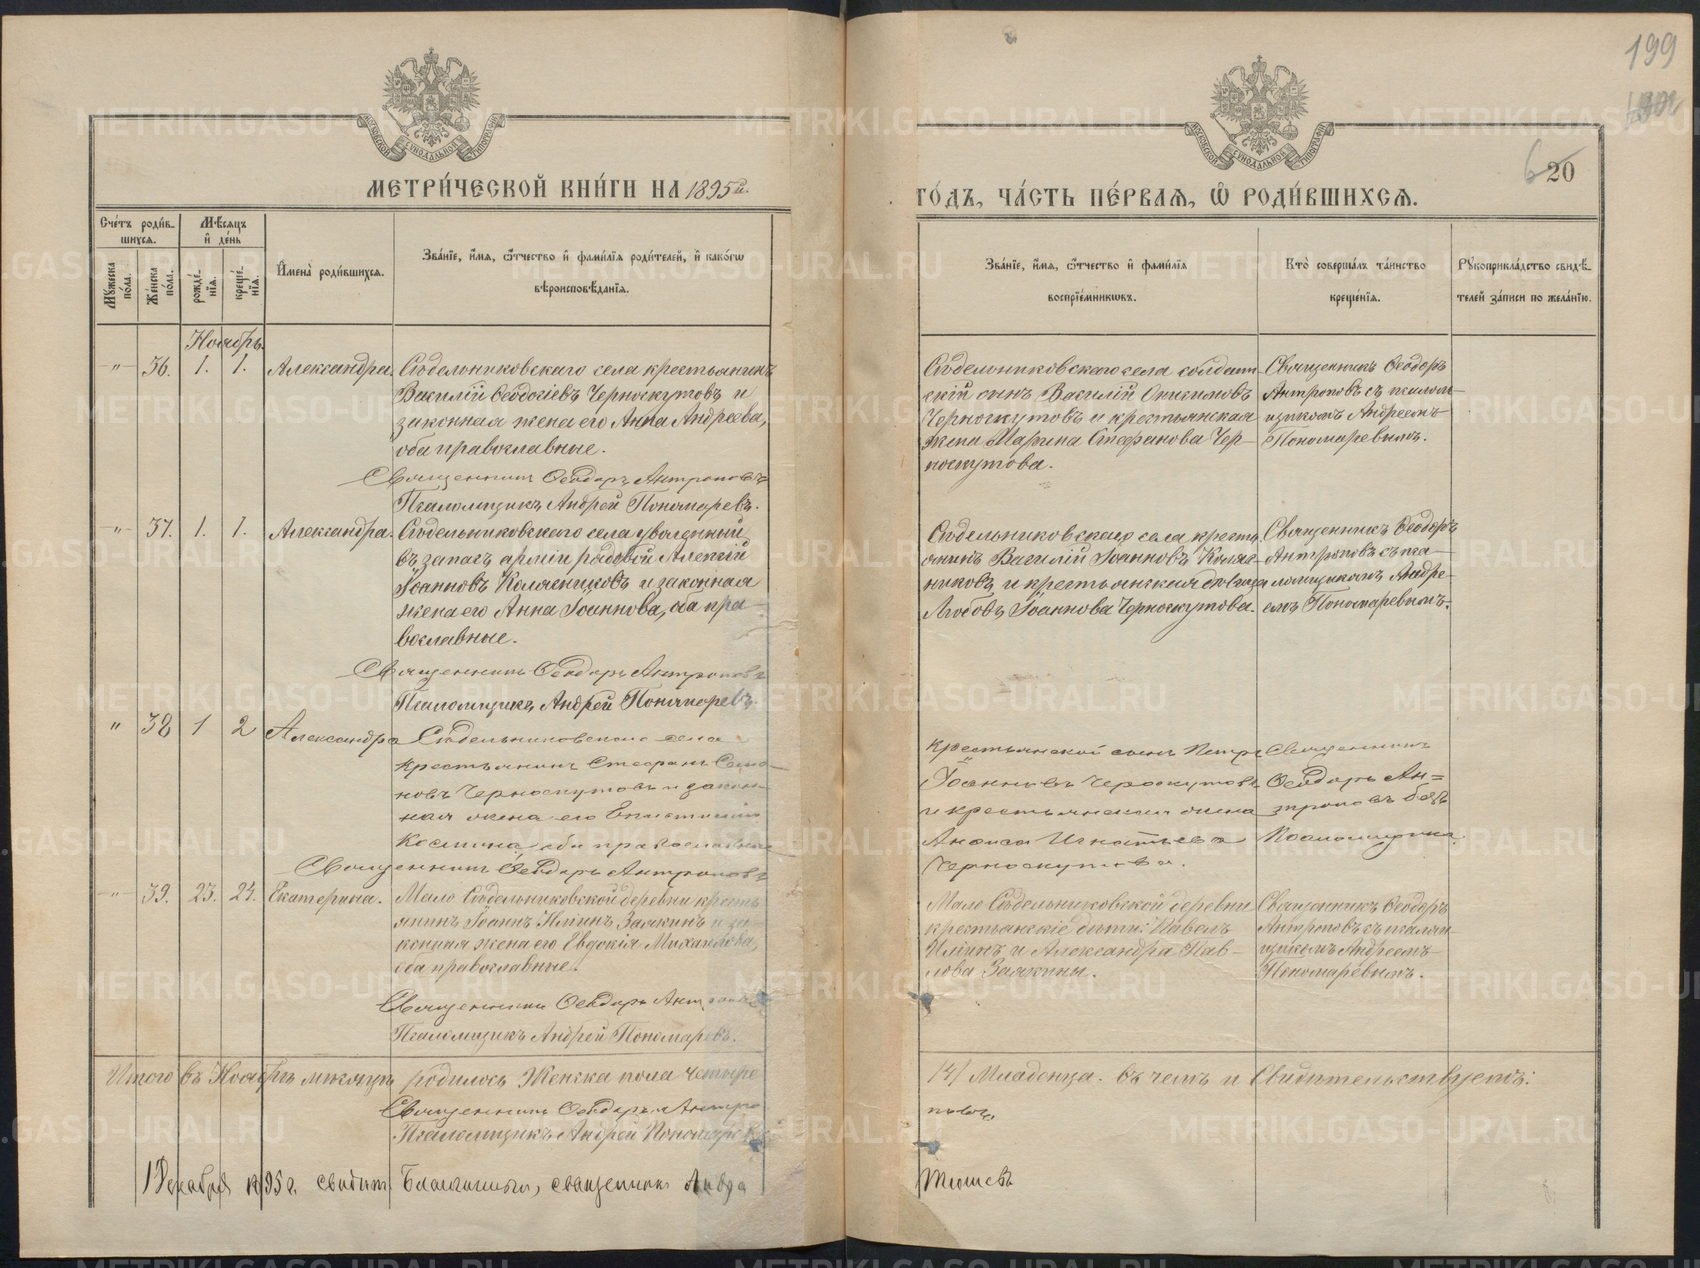 199
6 20
МЕТРИ́ЧЕСКОЙ КНИ́ГИ НА 1895й.
ГО́ДЪ, ЧА́СТЬ ПЕ́РВАЯ, Ѽ РОДИ́ВШИХСЯ.
Сче́тъ роди́в-
шихся.
Мѣ́сяцъ
и҆ де́нь
Мꙋ́жеска по́ла.
Же́нска по́ла.
рожде́-
нїя.
креще́-
нїя.
И҆мена̀ роди́вшихся.
Зва́нїе, и҆́мя, ѻ҆́тчество и҆ фами́лїя роди́телей, и҆ како́гѡ
вѣроисповѣ́данїя.
Зва́нїе, и҆́мя, ѻ҆́тчество и҆ фами́лїя
воспрїе́мникѡвъ.
Кто̀ соверша́лъ та́инство
креще́нїя.
Рꙋкоприкла́дство свидѣ́-
телей за́писи по жела́нїю.
Ноябрь.
-"- 36. 1. 1. Александра.
Сѣдельниковскаго села крестьянинъ
Василій Ѳеодосіевъ Черноскутовъ и
законная жена его Анна Андреева,
оба православные.
Священникъ Ѳеодоръ Антроповъ
Псаломщикъ Андрей Пономаревъ.
Сѣдельниковскаго села солдат-
скій сынъ Василій Онисимовъ
Черноскутовъ и крестьянская
жена Марина Стефанова Чер-
носкутова.
Священникъ Ѳеодоръ
Антроповъ съ псалом-
щикомъ Андреемъ
Пономаревымъ.
-"- 37. 1. 1. Александра.
Сѣдельниковскаго села уволенный
въ запасъ арміи рядовой Алексій
Іоанновъ Колясниковъ и законная
жена его Анна Іоаннова, оба пра-
вославные.
Священникъ Ѳеодоръ Антроповъ
Псаломщикъ Андрей Пономаревъ.
Сѣдельниковскаго села кресть-
янинъ Василій Іоанновъ Коляс-
никовъ и крестьянская дѣвица
Любовь Іоаннова Черноскутова.
Священникъ Ѳеодоръ
Антроповъ съ пса-
ломщикомъ Андре-
емъ Пономаревымъ.
" 38 1 2 Александра
Сѣдельниковскаго села
крестьянинъ Стефанъ
новъ Черноскутовъ и закон-
ная жена его
Космина, оба православные
Священникъ Ѳеодоръ Антроповъ
Крестьянской сынъ Петръ
Іоанновъ Черноскутовъ
и крестьянская жена
Анфиса Игнатьева
Черноскутова.
Священникъ
Ѳеодоръ Ан=
троповъ безъ
Псаломщика.
-"- 39. 23. 24. Екатерина.
Мало Сѣдельниковской деревни кресть-
янинъ Іоаннъ Ильинъ Заякинъ и за-
конная жена его Евдокія Михаилова,
оба православные.
Священникъ Ѳеодоръ Антроповъ
Псаломщикъ Андрей Пономаревъ.
Мало Сѣдельниковской деревни
крестьянскіе дѣти: Павелъ
Ильинъ и Александра Пав-
лова Заякины.
Священникъ Ѳеодоръ
Антроповъ съ псалом-
щикомъ Андреемъ
Пономаревымъ.
Итого въ Ноябрѣ мѣсяцѣ родилось Женска пола четыре
/4/ Младенца. Въ чемъ и свидѣтельствуемъ:
Священникъ Ѳеодоръ Антро
повъ,
Псаломщикъ Андрей Пономаревъ
1 Декабря 1895 г. свидѣт. Благочинный, священникъ